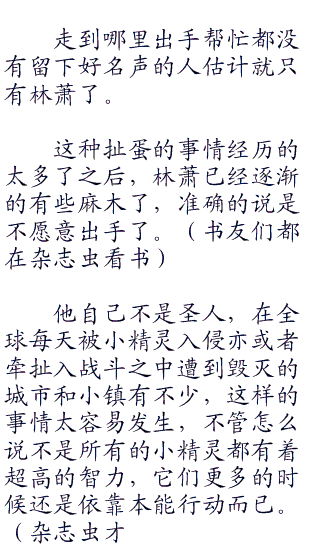 走到哪里出手帮忙都没
有留下好名声的人估计就只
有林萧了。
这种扯蛋的事情经历的
太多了之后，林萧已经逐渐
的有些麻木了，准确的说是
不愿意出手了。（书友们都
在杂志虫看书）
他自己不是圣人，在全
球每天被小精灵入侵亦或者
牵扯入战斗之中遭到毁灭的
城市和小镇有不少，这样的
事情太容易发生，不管怎么
说不是所有的小精灵都有着
超高的智力，它们更多的时
候还是依靠本能行动而已。
（杂志虫才